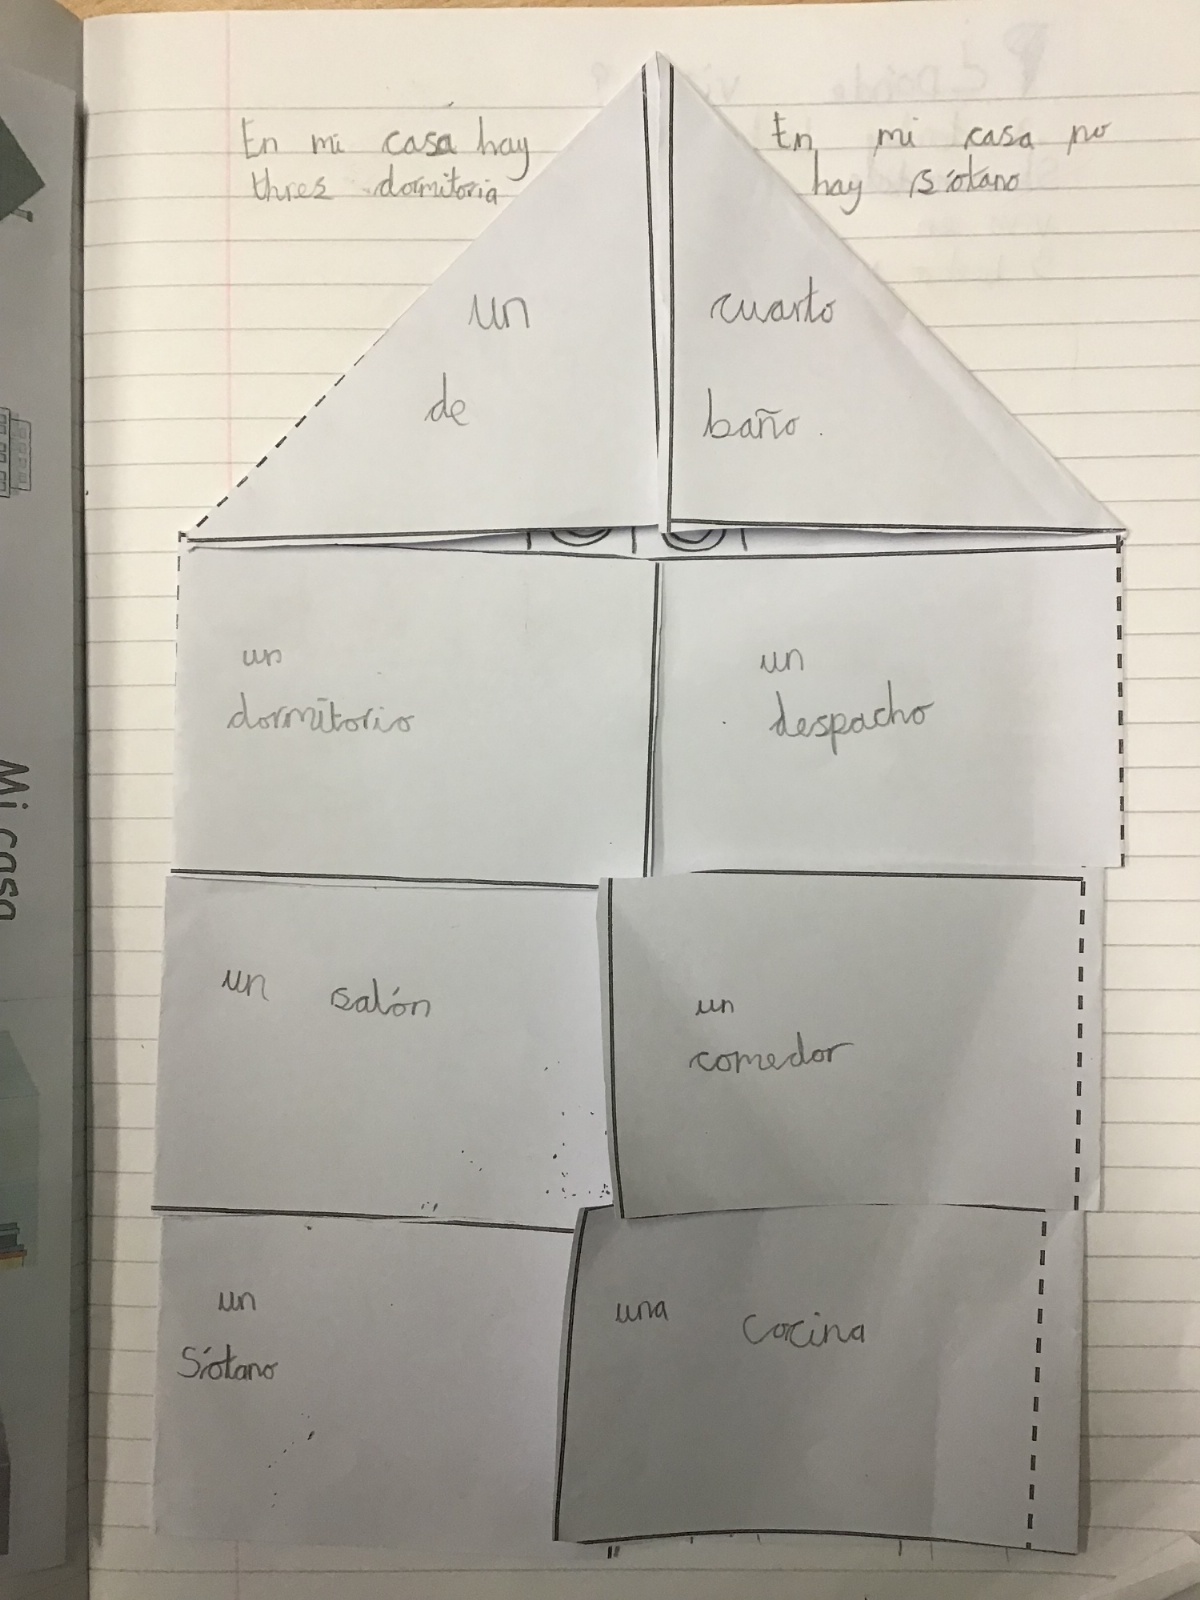 En mi casa hay
thres dormitoria
En mi casa no
hay síotano
un cuarto
de baño.
un
dormitorio
un
despacho
un salón
un
comedor
un
Síotano
una cocina
Mi casa